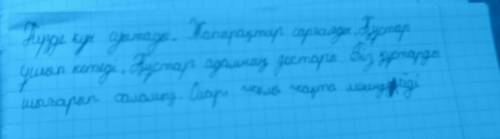 Күзде күн суытады. Жапырақтар сарғаяды. Құстар
ұшып кетеді. Құстар адамның достары. Біз құстарды
шығарып саламыз. Олар жылы жақта